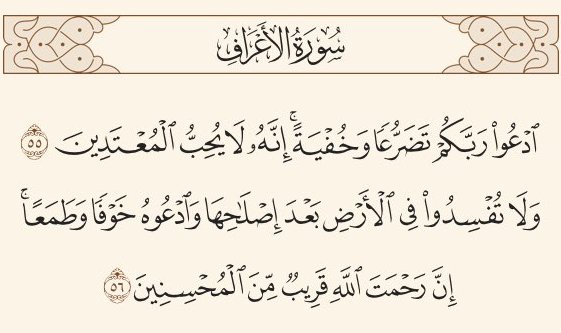 سُورَةُ الأَعْرَافِ
ٱدۡعُواْ رَبَّكُمۡ تَضَرُّعٗا وَخُفۡيَةًۚ إِنَّهُۥ لَا يُحِبُّ ٱلۡمُعۡتَدِينَ ٥٥
وَلَا تُفۡسِدُواْ فِي ٱلۡأَرۡضِ بَعۡدَ إِصۡلَٰحِهَا وَٱدۡعُوهُ خَوۡفٗا وَطَمَعًاۚ
إِنَّ رَحۡمَتَ ٱللَّهِ قَرِيبٞ مِّنَ ٱلۡمُحۡسِنِينَ ٥٦